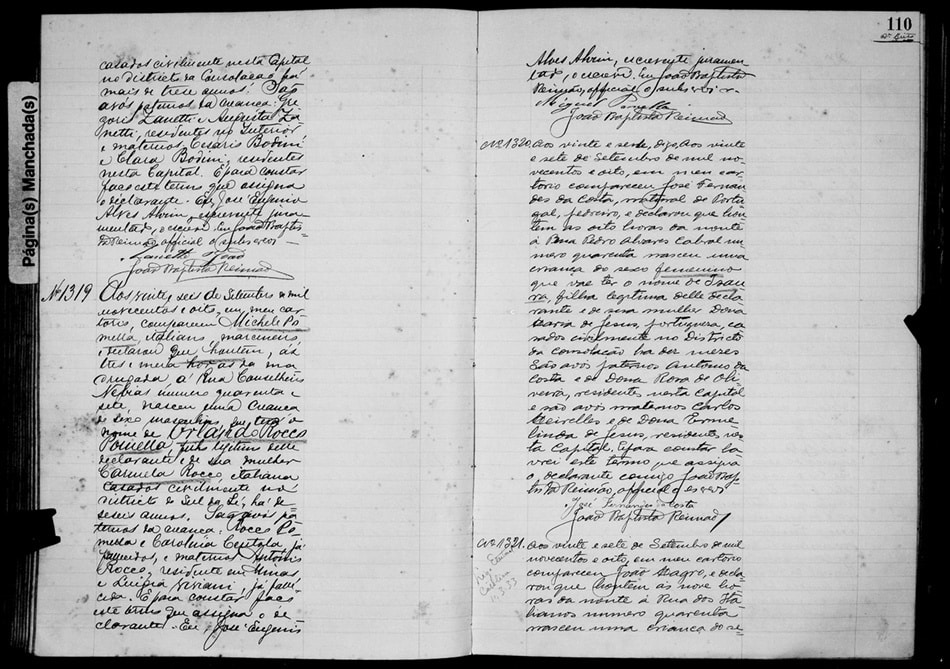 Página(s) Manchada(s)
casados civilmente nesta Capital
no districto da Consolação ha
mais de trese annos. São
avós paternos da creança: Gre
gori Zanetti e Augusta Za
netti, residentes no Interior
e maternos, Cesaris Bodini
e Clara Bodini, residentes
nesta Capital. E para constar
faço este termo que assigna
o declarante. Eu, José Eugenio
Alves Alvim, escrevente jura
mentado, o escrevi. Eu João Baptis
ta Reimão, official o subscrevi
Zanetti João
João Baptista Reimão
Nº 1319 Aos vinte e seis de Setembro de mil
novecentos e oito, em meu car
torio, compareceu Michele Po
mella, italiano, marceneiro,
e declarou que hontem, ás
tres e meia horas da ma
drugada á Rua Conselheiro
Nebias numero quarenta e
sete, nasceu uma creança
de sexo masculino, que terá o
nome de Orlando Rocco
Pomella, filho legitimo delle
declarante e de sua mulher
Carmela Rocco, italiana
casados civilmente no
districto do Sul da Sé, ha
seis annos. São avós pa
ternos da creança: Rocco Po
mella e Carolina Centola, já
fallecidos, e maternos Antonio
Rocco, residente em Minas
e Luigia Viviani, já falle
cida. E para constar faço
este termo que assigna o de
clarante. Eu, José Eugenio
110
Alves Alvim, escrevente juramen
tado, o escrevi. Eu João Baptista
Reimão, official o subscrevi
Miguel Pomella
João Baptista Reimão
Nº 1320. Aos vinte e sente, digo, Aos vinte
e sete de Setembro de mil no
vecentos e oito, em meu car
torio compareceu José Fernan
des da Costa, natural de Portu
gal, pedreiro, e declarou que hon
tem as oito horas da noite
á Rua Pedro Alvares Cabral nu
mero quarenta nasceu uma
creança do sexo femenino
que vae ter o nome de Isau
ra, filha legitima delle decla
rante e de sua mulher Dona
Maria de Jesus, portugueza, ca
sados civilmente no Districto
da Consolação ha dez mezes
São avós paternos Antonio da
Costa e de Dona Rosa de Oli
veira, residentes nesta Capital
e são avós maternos Carlos
Meirelles e de Dona Erme
linda de Jesus, residentes nes
ta Capital. E para constar la
vrei este termo que assigna
o declarante comigo João Bap
tista Reimão, official o escrevi
José Fernandes Costa
João Baptista Reimão
Nº 1321. Aos vinte e sete de Setembro de mil
novecentos e oito, em meu cartorio
compareceu João Magro, e decla
rou que hontem ás nove ho
ras da noite á Rua dos Ita
lianos numero quarenta
nasceu uma creança do se=